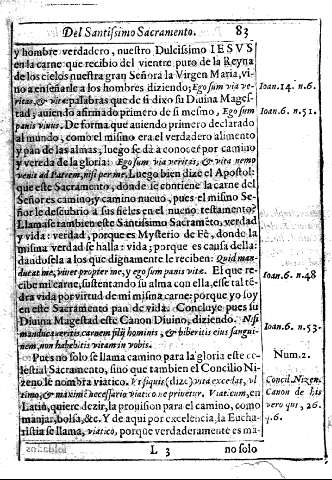 Del Santissimo Sacramento. 83
y hombre verdadero, nuestro Dulcissimo IESVS
en la carne que recibio del vientre puro de la Reyna
de los cielos nuestra gran Señora la Virgen Maria, vi-
no a enseñarle a los hombres diziendo; Ego sum via ve-
ritas, & vita: palabras que de si dixo su Diuina Mages-
tad, auiendo afirmado primero de si mesmo, Ego sum
panis viuus. De forma que auiendo primero declarado
al mundo, como el mismo era el verdadero alimento
y pan de las almas, luego se dà a conocer por camino
y vereda de la gloria: Ego sum via veritas, & vita nemo
venit ad Patrem, nisi per me. Luego bien dize el Apostol:
que este Sacramento, donde se contiene la carne del
Señor es camino; y camino nueuo, pues el mismo Señor
le descubrio a sus fieles en el nueuo testamento?
Llamase tambien este Santissimo Sacrameto, verdad
y vida: verdad, porque es Mysterio de Fè, donde la
misma verdad se halla: vida; porque es causa della:
dandosela a los que dignamente le reciben: Quid man-
ducat me, viuet propter me, y ego sum panis vitæ. El que re-
cibe mi carne, sustentando su alma con ella, esse tal te-
dra vida por virtud de mi misma carne: porque yo soy
en este Sacramento pan de vida. Concluye pues su
Diuina Magestad este Canon Diuino, diziendo. Nisi
manducaveritis carnem filij hominis, & biberitis eius sangui-
nem, non habebitis vitam in vobis.
Pues no solo se llama camino para la gloria este ce-
lestial Sacramento, sino que tambien el Concilio Ni-
zeno le nombra viatico. Vt siquis (dize) vita excedat, vl-
timo, & maximè necessario viatico ne privetur. Viaticum, en
Latin, quiere dezir, la prouision para el camino, como
manjar, bolsa, &c. Y de aqui por excelencia, la Eucha-
ristia se llama, viatico, porque verdaderamente es ma-
L 3 no solo
Ioan. 14. n. 6.
Ioan. 6. n. 51.
Ioan. 6. n. 48
Ioan. 6. n. 53.
Num. 2.
Concil. Nizen.
Canon de his
vero qui, 26.
q. 6.